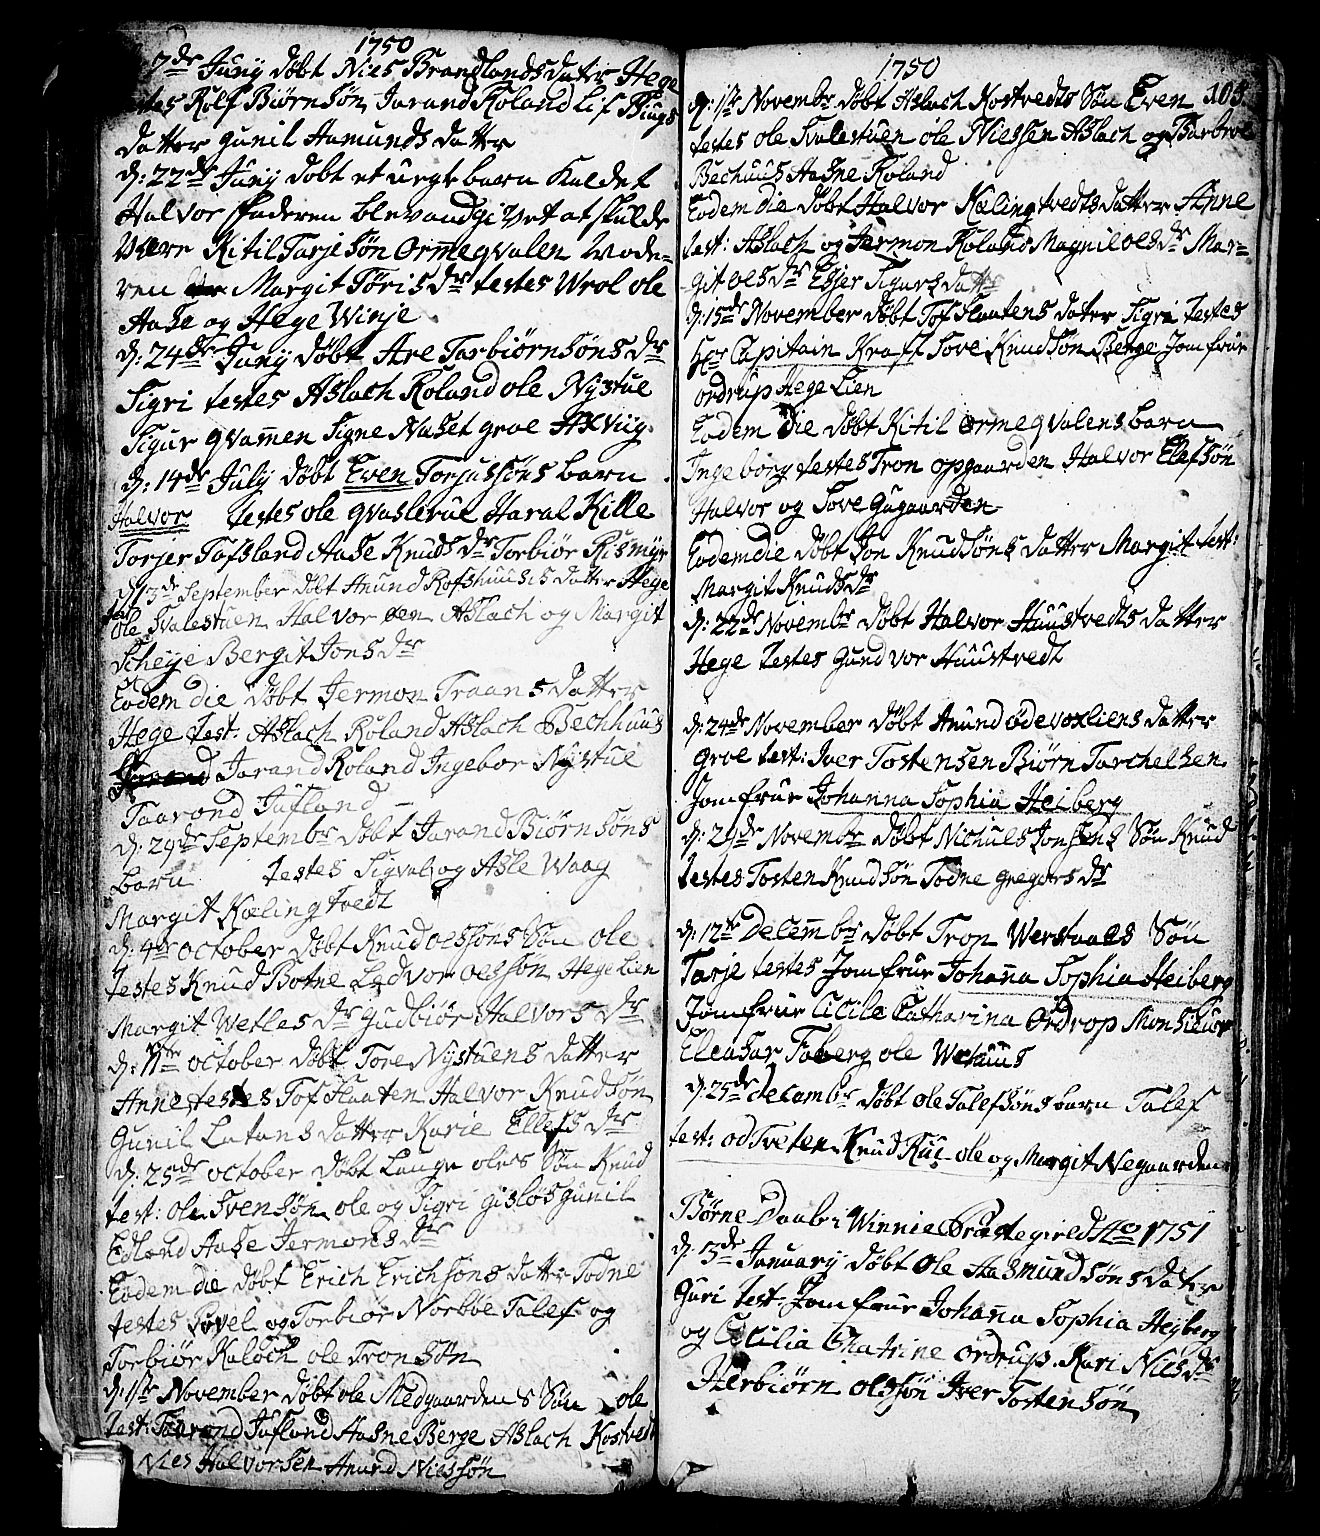 1750
7de Juny döbt Niels Brandlands dater Hege
testes Rolf Biörnsön Jarand Roland Lif Biugs
datter gunil Aamunds datter
d: 22de Juny döbt et uegte barn Kaldet
Halvor faderen blev andgivet at skulde
være Kitil Tarjesön Ormeqvalen Mode-
ren Margit Töris dr testes Wrol ole
Aase og Hege Winje
d: 24de Juny döbt Are Tarbiörnsöns dr
Sigri testes Aslach Roland ole Nystue
Sigur qvamen Signe Naset groe Axvig
d: 14de July döbt Even Torjussöns barn
Halvor testes ole qvaslerue Haral Kille
Torjer Tofsland Aase Knuds dr Torbiör Rismyr
d: 13de September döbt Anund Rofshuuses datter Hege
test ole Svalestuen Halvor öen Aslach og Margit
Scheye Bergit Jons dr
Eodem die döbt Jermon Traans datter
Hege test: Aslach Roland Aslach Bechhuus
Jarand Roland Ingebor Nystue
Taarond Jufland
d: 29de Septembr döbt Jarand Biörnsöns
barn testes Sigval og Asle Waag
Margit Kælingtvedt
d: 4de october döbt Knud oelssons Sön ole
testes Knud Botne Ledvor oelssön Hege Lien
Margit Wetles dr Gudbiör Halvors dr
d: 11te october döbt Tore Nystuens datter
Anne testes Tof Slaaten Halvor Knudsön
Gunil Latans datter Karie Ellefs dr
d: 25de october döbt Lange oles Sön Knud
test: ole Svensön ole og Sigri gislös gunil
Edland Aase Jermons dr
Eodem die döbt Erich Erichsöns datter Todne
testes Povel og Torbiör Norböe Talef og
Torbiör Kaloch ole Tronsön
d: 1ste November döbt ole Medgaardens Sön ole
test: Taarond Jufland Aasne Berge Aslach Kostvedt
Nies Halvorsen Anund Nielssön
1750
103.
d: 1ste Novembr döbt Aslach Kostvedts Sön Even
testes ole Svalestuen ole Nielsen Aslach og Barbroe
Bechuus Aasne Roland
Eodem die döbt Halvor Kælingtvedts datter Anne
test: Aslach og Jermon Roland Magnil oels dr Mar-
git oels dr Egjer Sigurs datter
d: 15de November döbt Tof Slaatens dater Sigri testes
Hr Capitain Kraft Tove Knudsön Berge Jomfrue
ordrup Hege Lien
Eodem die döbt Kitil Ormeqvalens barn
Ingeborg testes Tron opgaarden Halvor Elefsön
Halvor og Tove Gugaarden
Eodem die döbt Jon Knudsöns datter Margit test:
Margit Knuds dr
d: 22de Novembr döbt Halvor Huustvedts datter
Hege testes Gundvor Huustvedt
d: 24de November döbt Anund ödevoxliens datter
groe test: Iver Tostensen Biörn Tarchelsen
Jomfrue Johanna Sophia Heiberg
d: 29de Novembr döbt Nichuels Jonsens Sön Knud
testes Tosten Knudsön Todne gregors dr
d: 12te Decembr döbt Tron Werstaaels Sön
Tarje testes Jomfrue Johanna Sophia Heiberg
Jomfrue Cicile Catharina Ordrop Monsieur
Eleasar Faberg ole Wehuus
d: 25de decembr döbt ole Talefsöns barn Talef
test: od Tveten Knud Rui ole og Margit Negaarden
Börne Daab i Winnie Præstegield Ao 1751
d: 3de January döbt ole Aasmundsöns dater
Guri test: Jomfrue Johanna Sophia Heyberg
og Cecilia Chatrine ordrup. Kari Niels dr
Herbiörn olssön Iver Tostensön